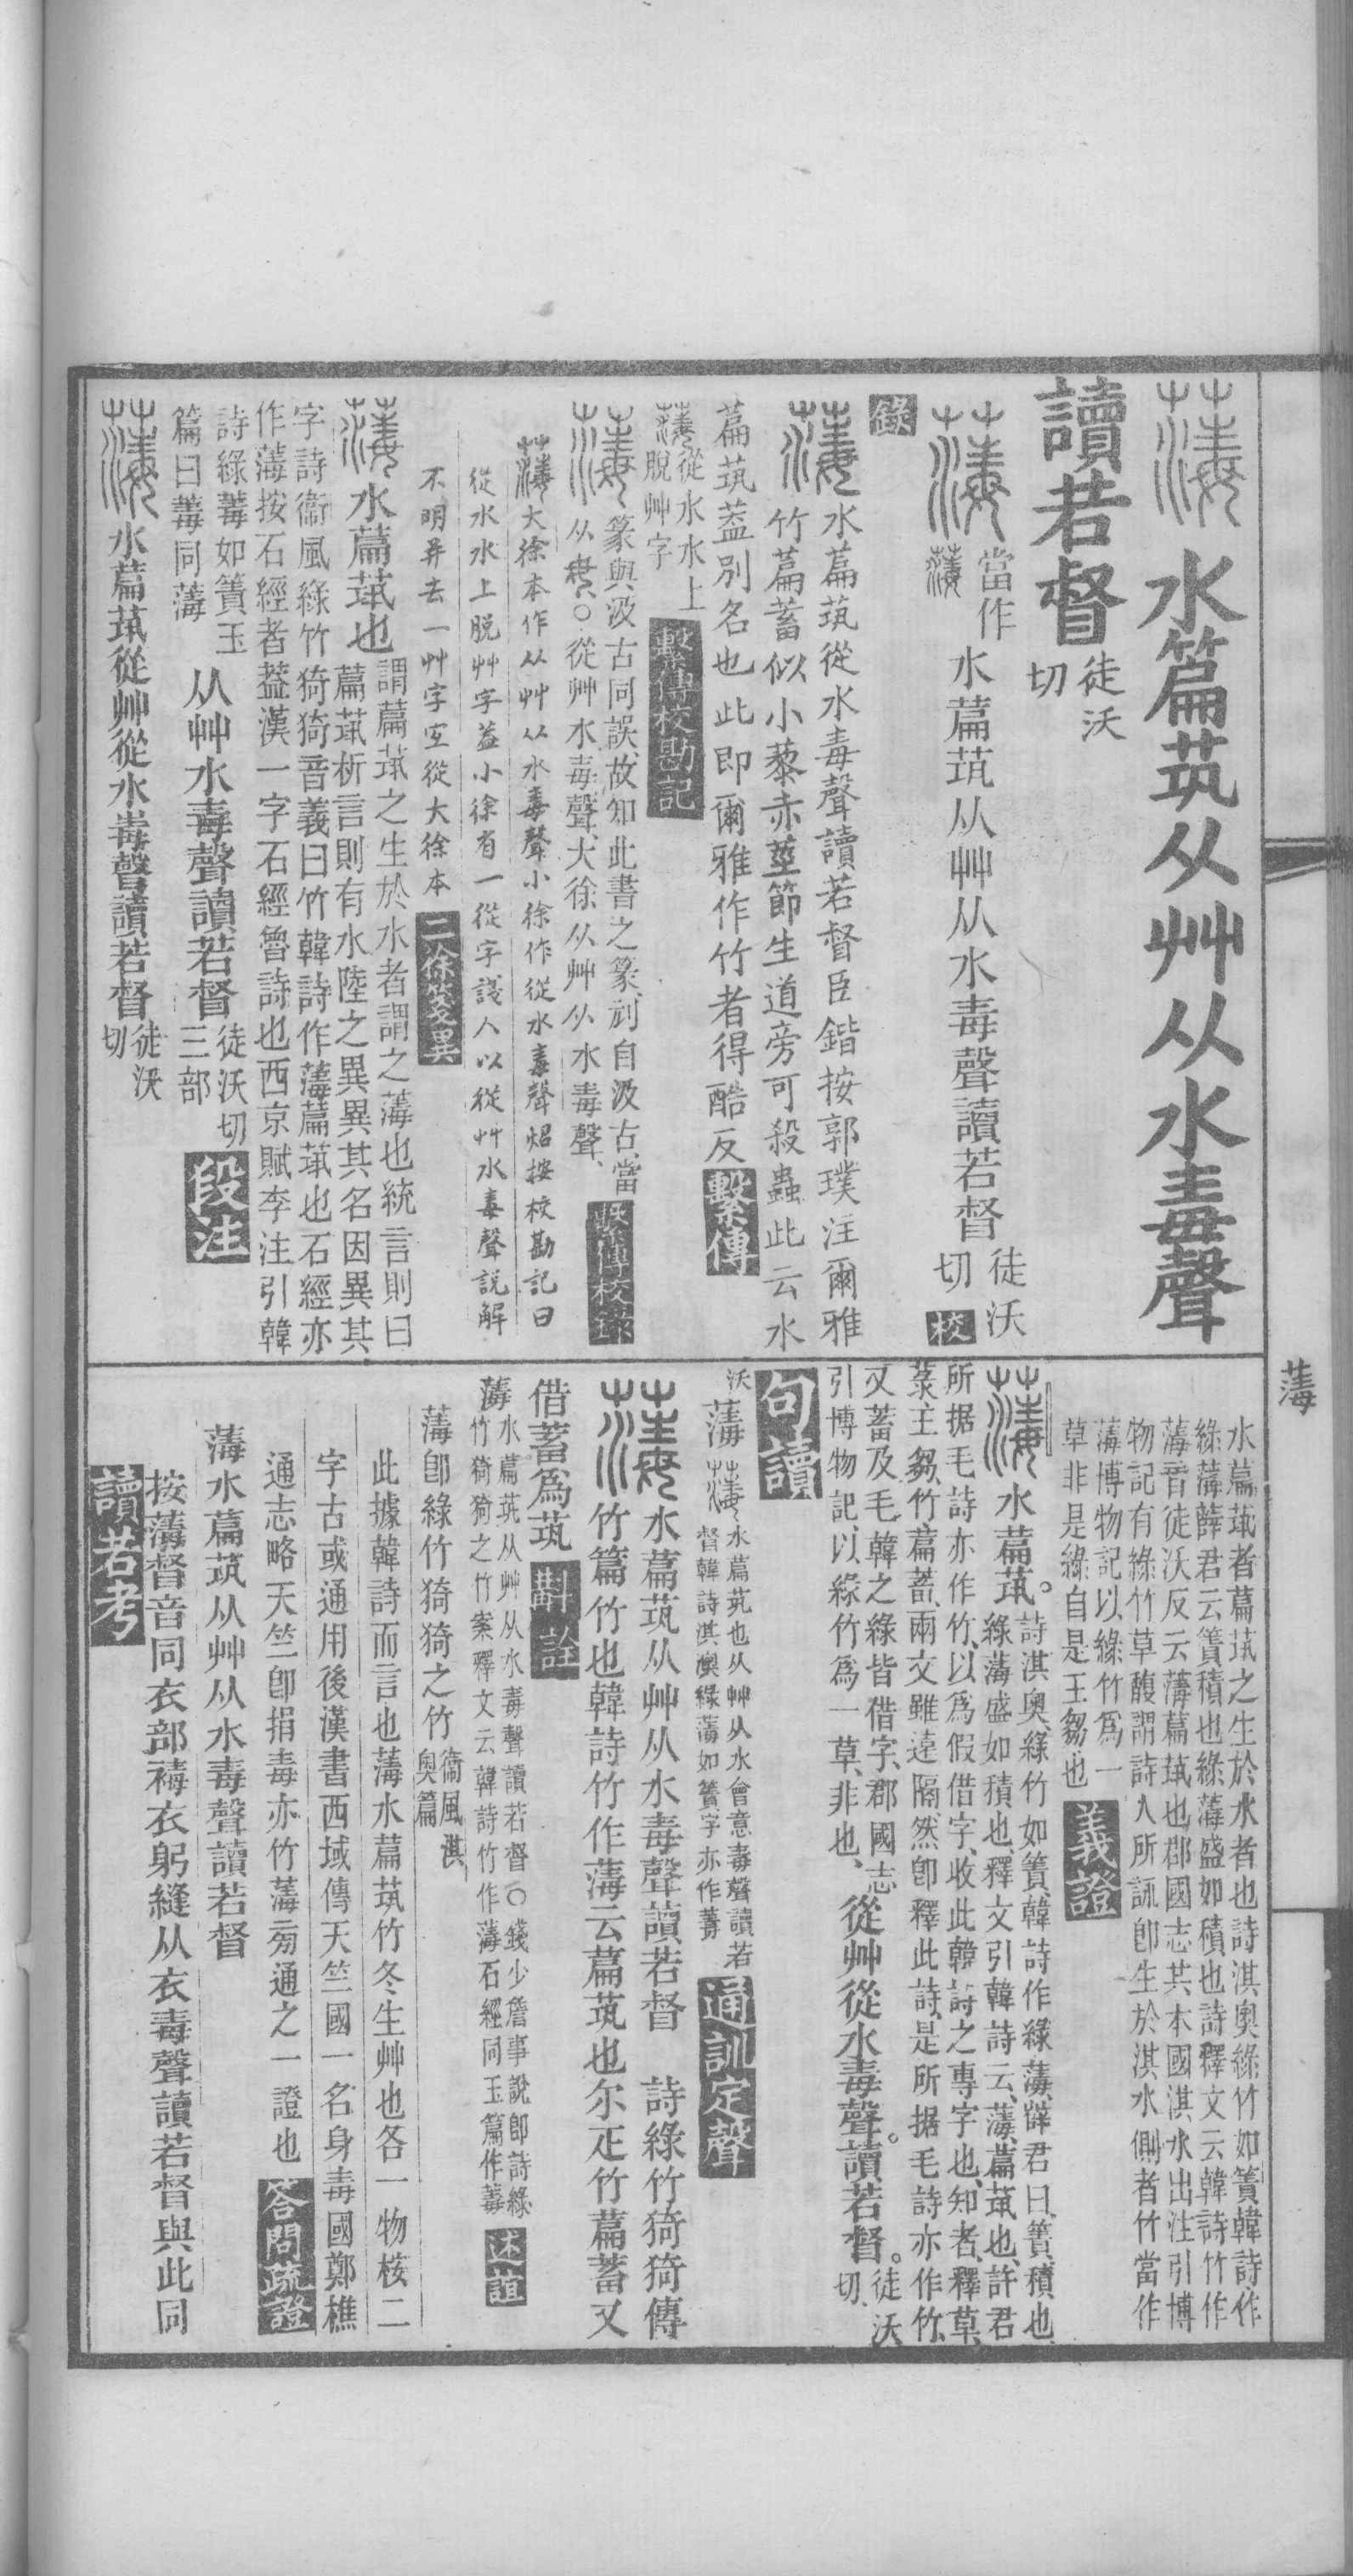 薄
水篇茿从艸从水毒聲
讀若督徒沃切
當作
水萹茿从艸从水毒聲讀若督徒沃切校
錄
水萹茿從水毒聲讀若督臣鍇按郭璞注爾雅
竹萹蓄似小藜赤莖節生道旁可殺蟲此云水
萹茿葢別名也此即爾雅作竹者得酷反繫傳
從水水上
脫艸字繫傳校勘記
篆與汲古同誤故知此書之篆刓自汲古當
从𡴕○從艸水毒聲大徐从艸从水毒聲繫傳校錄
大徐本作从艸从水毒聲小徐作從水毒聲炤按校勘記曰
從水水上脱艸字葢小徐有一從字淺人以從艸水毒聲説解
不明弄去一艸字宐從大徐本二徐箋異
水萹茿也
謂萹茿之生於水者謂之薄也統言則曰
萹茿析言則有水陸之異異其名因異其
字詩衞風綠竹猗猗音義曰竹韓詩作薄萹茿也石經亦
作薄按石經者葢漢一字石經魯詩也西京賦李注引韓
詩綠䓯如簀玉
篇曰䓯同薄
从艸水毒聲讀若督徒沃切三部段注
水萹茿從艸從水毒聲讀若督徒沃切
水萹茿者萹茿之生於水者也詩淇奧綠竹如簀韓詩作
綠薄薛君云簀積也綠薄盛如積也詩釋文云韓詩竹作
薄音徒沃反云薄萹茿也郡國志其本國淇水出注引博
物記有綠竹草馥謂詩人所詠卽生於淇水側者竹當作
薄博物記以綠竹爲一
草非是綠自是王芻也義證
水萹茿。詩淇奧綠竹如簀韓詩作綠薄薛君曰簀積也
綠薄盛如積也釋文引韓詩云薄萹茿也許君
所据毛詩亦作竹以爲假借字收此韓詩之專字也知者釋草
菉王芻竹萹蓄兩文雖遠隔然卽釋此詩是所据毛詩亦作竹
又蓄及毛韓之綠皆借字郡國志
引博物記以綠竹爲一草非也從艸從水毒聲。讀若督。徒沃切
句讀
沃薄水萹茿也从艸从水會意毒聲讀若
督韓詩淇澳綠薄如簀字亦作䓯通訓定聲
水萹茿从艸从水毒聲讀若督　詩綠竹猗猗傳
竹篇竹也韓詩竹作薄云萹茿也尔疋竹萹蓄又
借蓄爲茿斠詮
薄水萹茿从艸从水毒聲讀若督○錢少詹事說卽詩綠
竹猗猗之竹案釋文云韓詩竹作薄石經同玉篇作䓯述誼
薄卽綠竹猗猗之竹衞風淇奧篇
此據韓詩而言也薄水萹茿竹冬生艸也各一物桉二
字古或通用後漢書西域傳天竺國一名身毒國鄭樵
通志略天竺卽捐毒亦竹薄旁通之一證也答問疏證
薄水萹茿从艸从水毒聲讀若督
按薄督音同衣部裻衣躬縫从衣毒聲讀若督與此同
讀若考